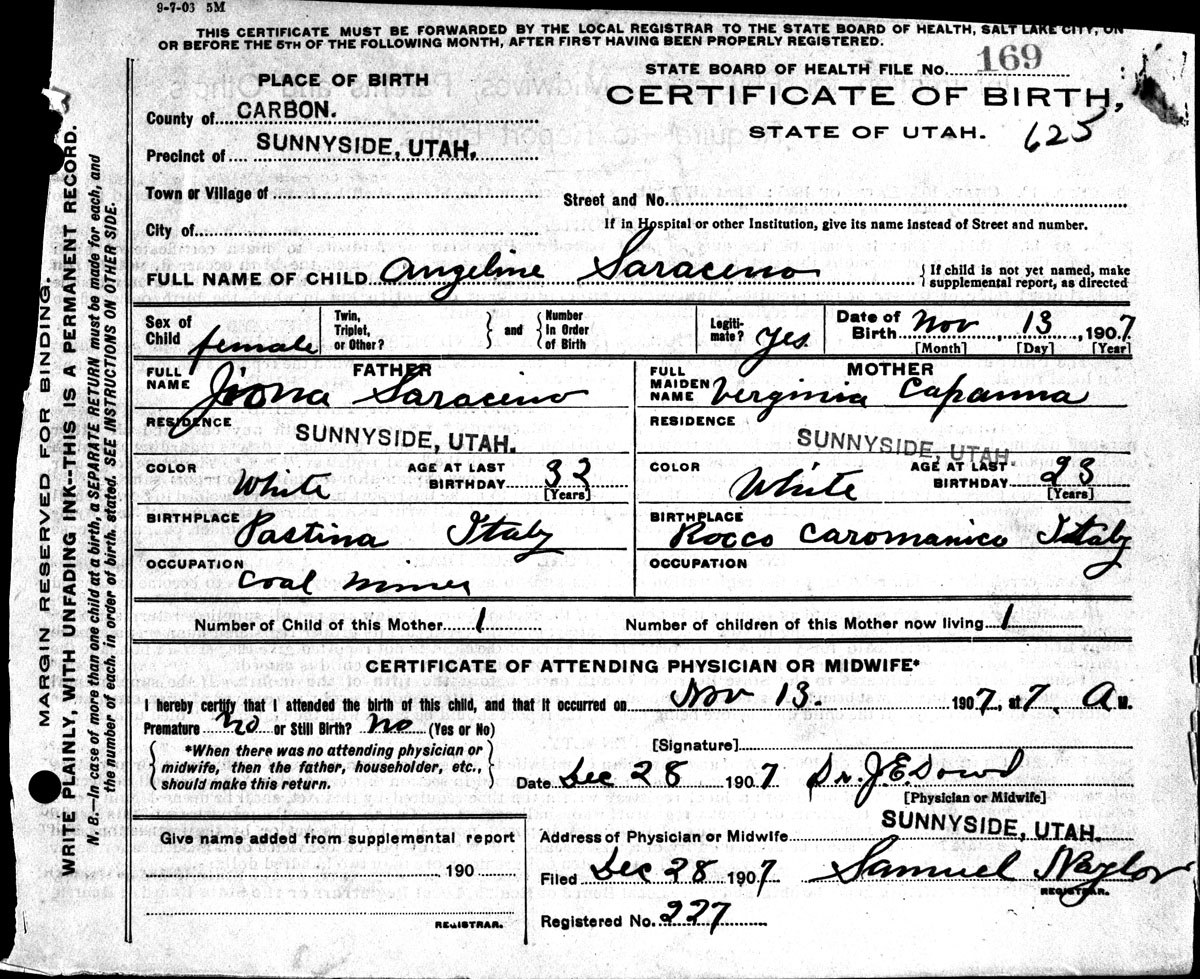 9-7-03 5M
THIS CERTIFICATE MUST BE FORWARDED BY THE LOCAL REGISTRAR TO THE STATE BOARD OF HEALTH, SALT LAKE CITY, ON
OR BEFORE THE 5TH OF THE FOLLOWING MONTH, AFTER FIRST HAVING BEEN PROPERLY REGISTERED.
PLACE OF BIRTH
STATE BOARD OF HEALTH FILE No. 169
County of CARBON.
CERTIFICATE OF BIRTH,
STATE OF UTAH. 625
Precinct of SUNNYSIDE, UTAH.
Town or Village of
Street and No.
City of
If in Hospital or other Institution, give its name instead of Street and number.
FULL NAME OF CHILD Angeline Saraceno { If child is not yet named, make
supplemental report, as directed
Sex of
Child female
Twin,
Triplet,
or Other?
} and {
Number
In Order
of Birth
Legiti-
mate? Yes
Date of
Birth Nov 13, 1907
[Month] [Day] [Year]
FATHER
FULL
NAME Saraceno
RESIDENCE
SUNNYSIDE, UTAH.
COLOR White AGE AT LAST
BIRTHDAY 32
[Years]
BIRTHPLACE
Pastina Italy
OCCUPATION
Coal Miner
MOTHER
FULL
MAIDEN
NAME Verginia Capanna
RESIDENCE
SUNNYSIDE, UTAH.
COLOR White AGE AT LAST
BIRTHDAY 23
[Years]
BIRTHPLACE
Rocco Caromanico Italy
OCCUPATION
Number of Child of this Mother 1
Number of children of this Mother now living 1
CERTIFICATE OF ATTENDING PHYSICIAN OR MIDWIFE*
I hereby certify that I attended the birth of this child, and that it occurred on Nov 13. 1907, at 7 A M.
Premature no or Still Birth? no (Yes or No)
{ *When there was no attending physician or
midwife, then the father, householder, etc.,
should make this return. }
[Signature]
Date Dec 28 1907 Dr. J E Dowd
[Physician or Midwife]
Give name added from supplemental report
190
REGISTRAR.
Address of Physician or Midwife SUNNYSIDE, UTAH.
Filed Dec 28 1907 Samuel Naylor
REGISTRAR.
Registered No. 227
MARGIN RESERVED FOR BINDING.
WRITE PLAINLY, WITH UNFADING INK--THIS IS A PERMANENT RECORD.
N. B.--In case of more than one child at a birth, a SEPARATE RETURN must be made for each, and
the number of each, in order of birth, stated. SEE INSTRUCTIONS ON OTHER SIDE.